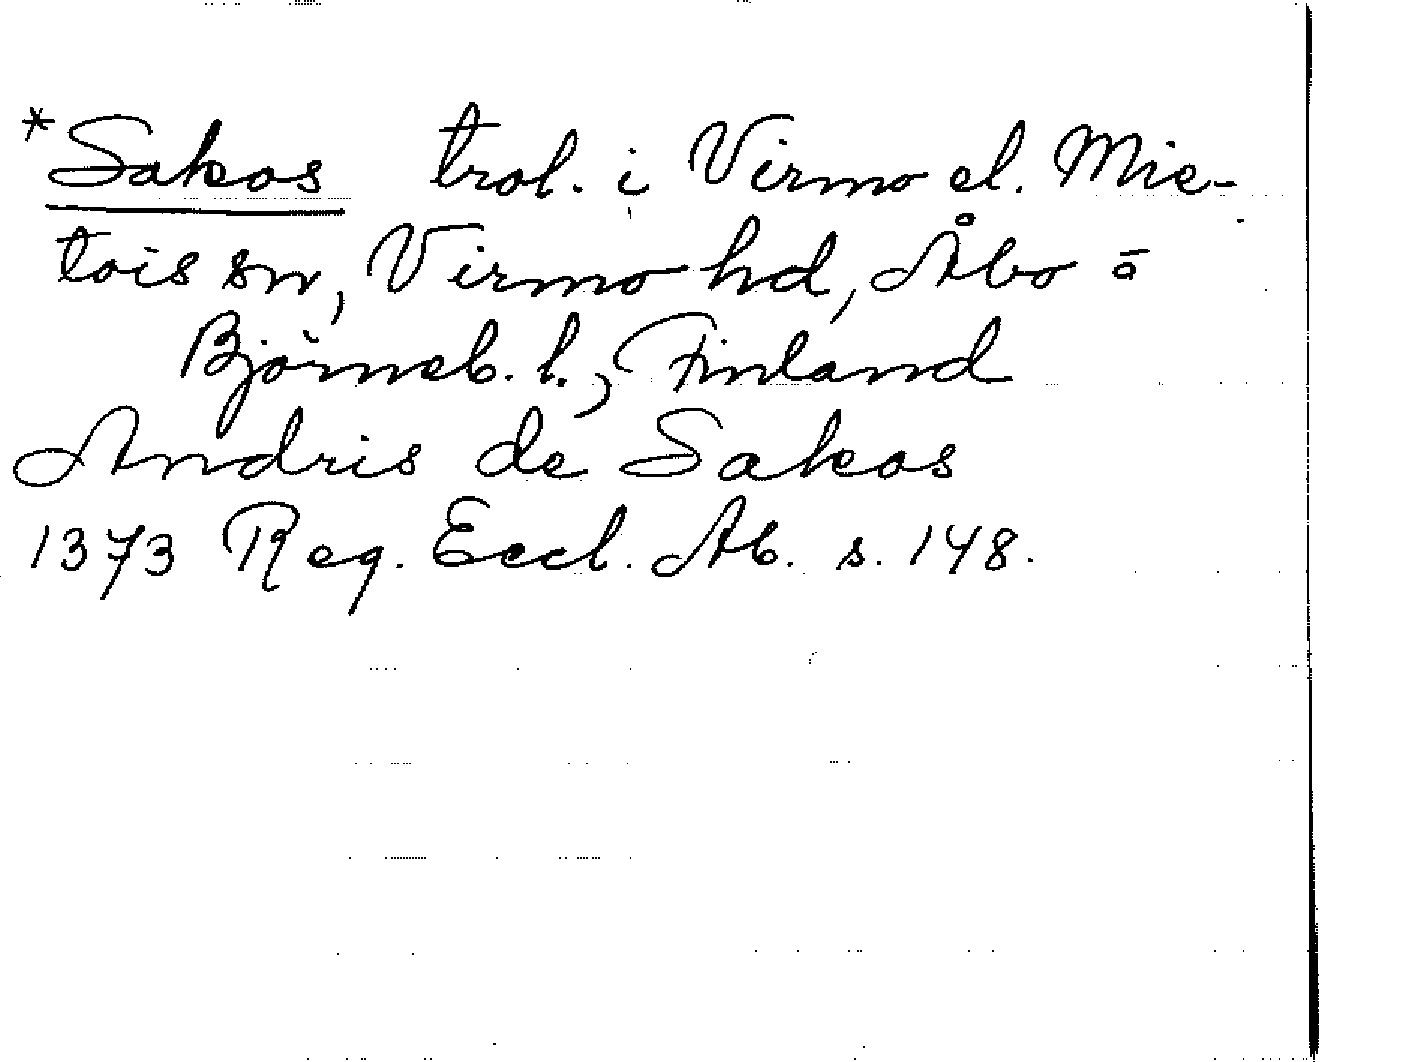 *Sakos trol. i Virmo el. Mie-
tois sn, Virmo hd, Åbo o
Björneb. l., Finland
Andris de Sakos
1373 Reg. Eccl. Ab. s. 148.